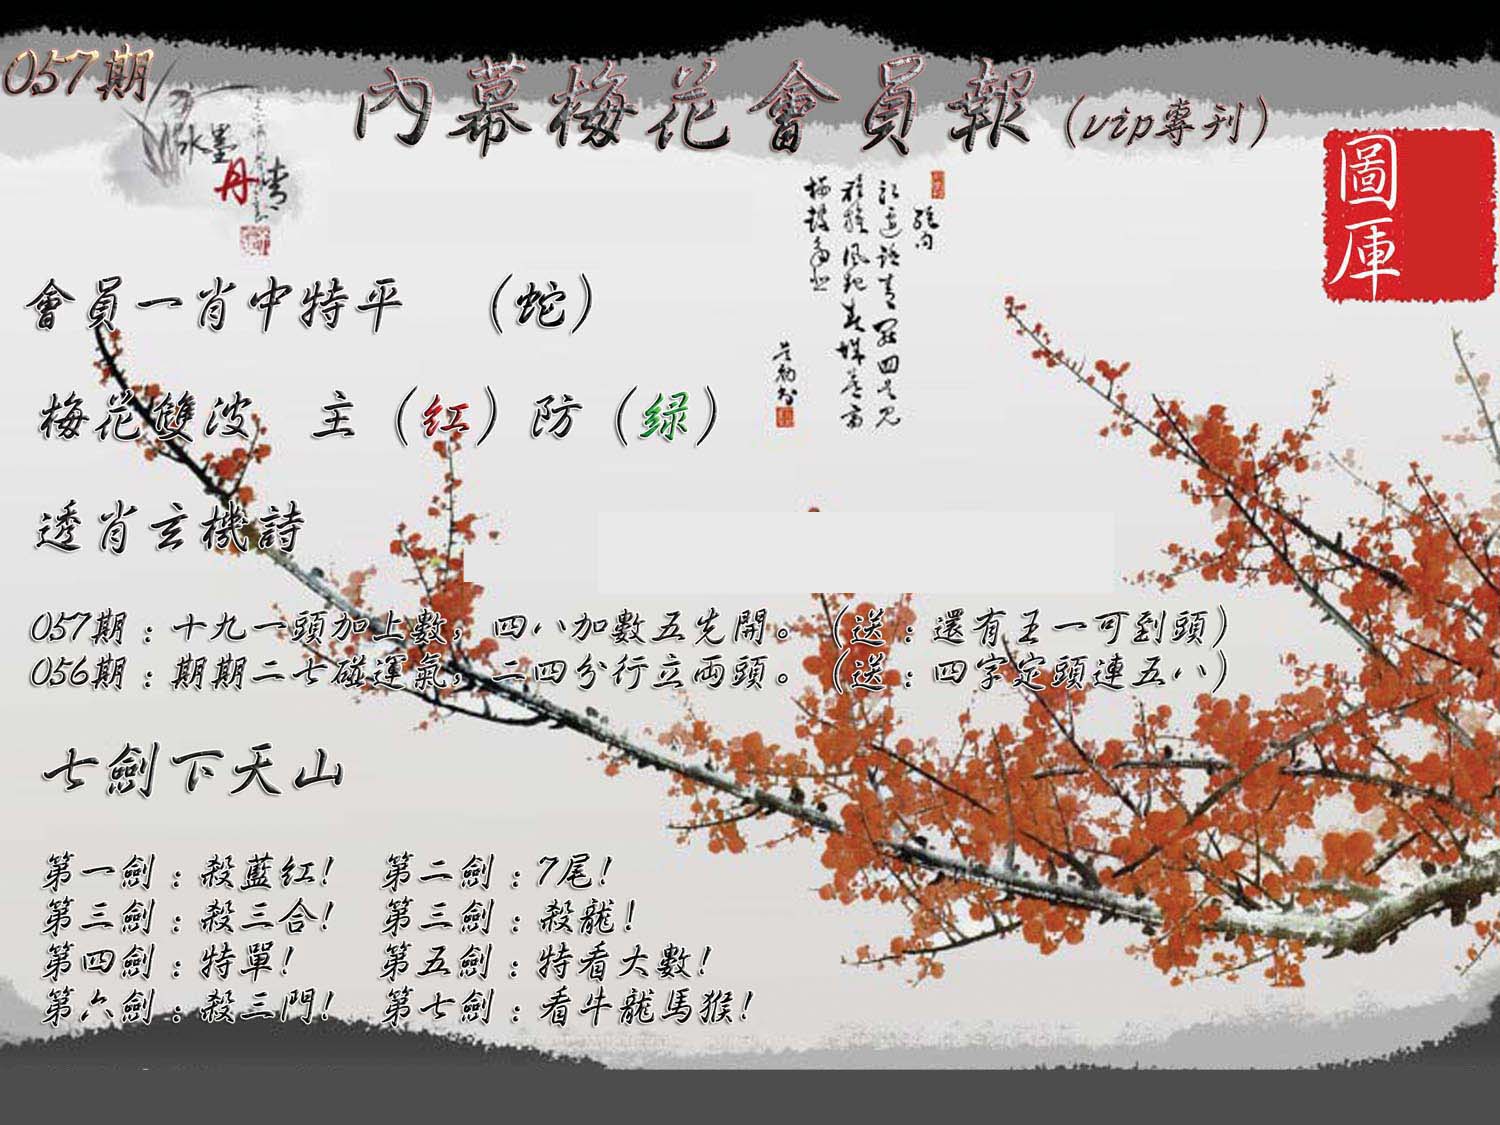 057期
內幕梅花會員報（vip專刊）
水墨
丹青
圖庫
會員一肖中特平　（蛇）
梅花雙波　主（红）防（绿）
透肖玄機詩
057期：十九一頭加上數，四八加數五先開。（送：還有王一可到頭）
056期：期期二七碰運氣，二四分行立兩頭。（送：四字定頭連五八）
七劍下天山
第一劍：殺藍红！　第二劍：7尾！
第三劍：殺三合！　第三劍：殺龍！
第四劍：特單！　第五劍：特看大數！
第六劍：殺三門！　第七劍：看牛龍馬猴！